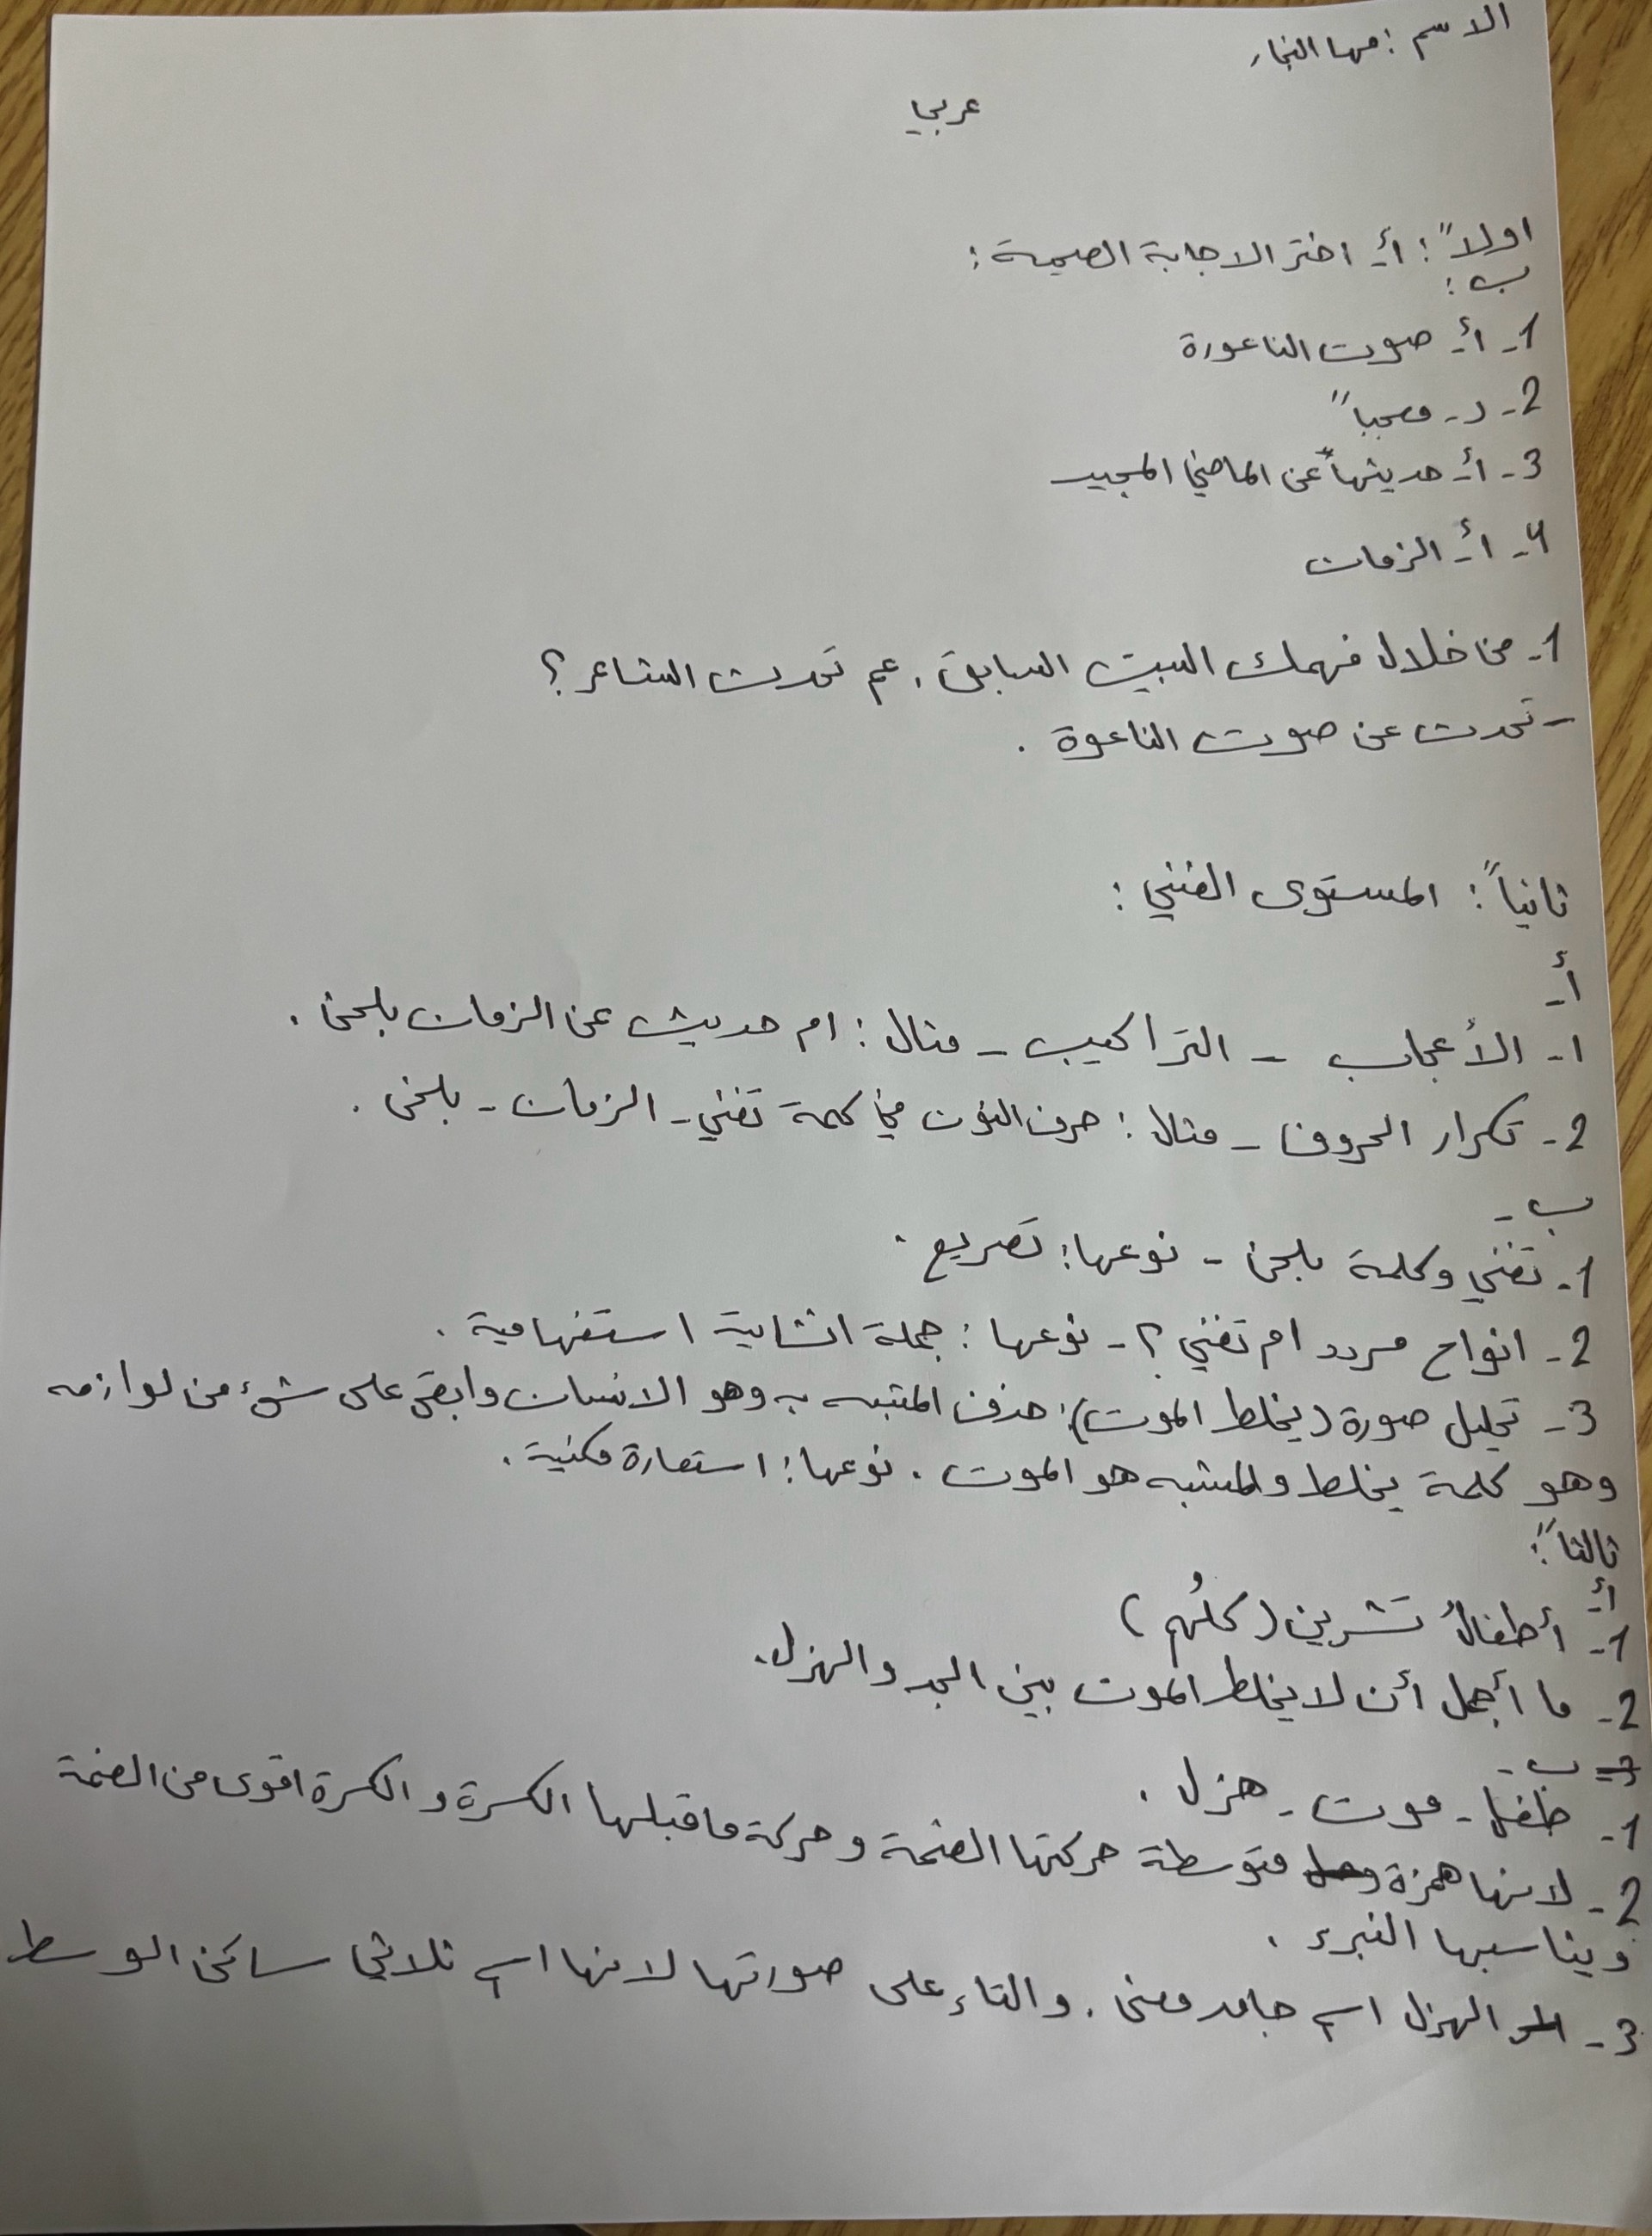 الاسم : مها النجار
عربي
اولاً : أ- اختر الاجابة الصحيحة :
ب :
1- أ- صوت الناعورة
2- د- معجباً
3- أ- حديثها عن الماضي المجيد
4- أ- الزمان
1- من خلال فهمك البيت السابق , عم تحدث الشاعر ؟
- تحدث عن صوت الناعوة .
ثانياً : المستوى الفني :
أ-
1- الأعجاب - التراكيب - مثال : ام حديث عن الزمان بلحن .
2- تكرار الحروف - مثال : حرف النون في كلمة تغني - الزمان - بلحن .
ب -
1- تغني وكلمة بلحن - نوعها : تصريع .
2- انواح مردد ام تغني ؟ - نوعها : جملة انشاية استفهامية .
3- تحليل صورة (يخلط الموت) : حذف المشبه به وهو الانسان وابقى على شيء من لوازمه
وهو كلمة يخلط والمشبه هو الموت . نوعها : استعارة مكنية .
ثالثاً :
أ-
1- أطفالُ تشرين (كلُهم)
2- ما أجمل أن لا يخلط الموت بين الجد والهزل .
ب -
1- طفل - موت - هزل .
2- لانها همزة متوسطة حركتها الضمة وحركة ما قبلها الكسرة و الكسرة اقوى من الضمة
ويناسبها النبرة .
3- الهزل اسم جامد معنى . والتاء على صورتها لانها اسم ثلاثي ساكن الوسط